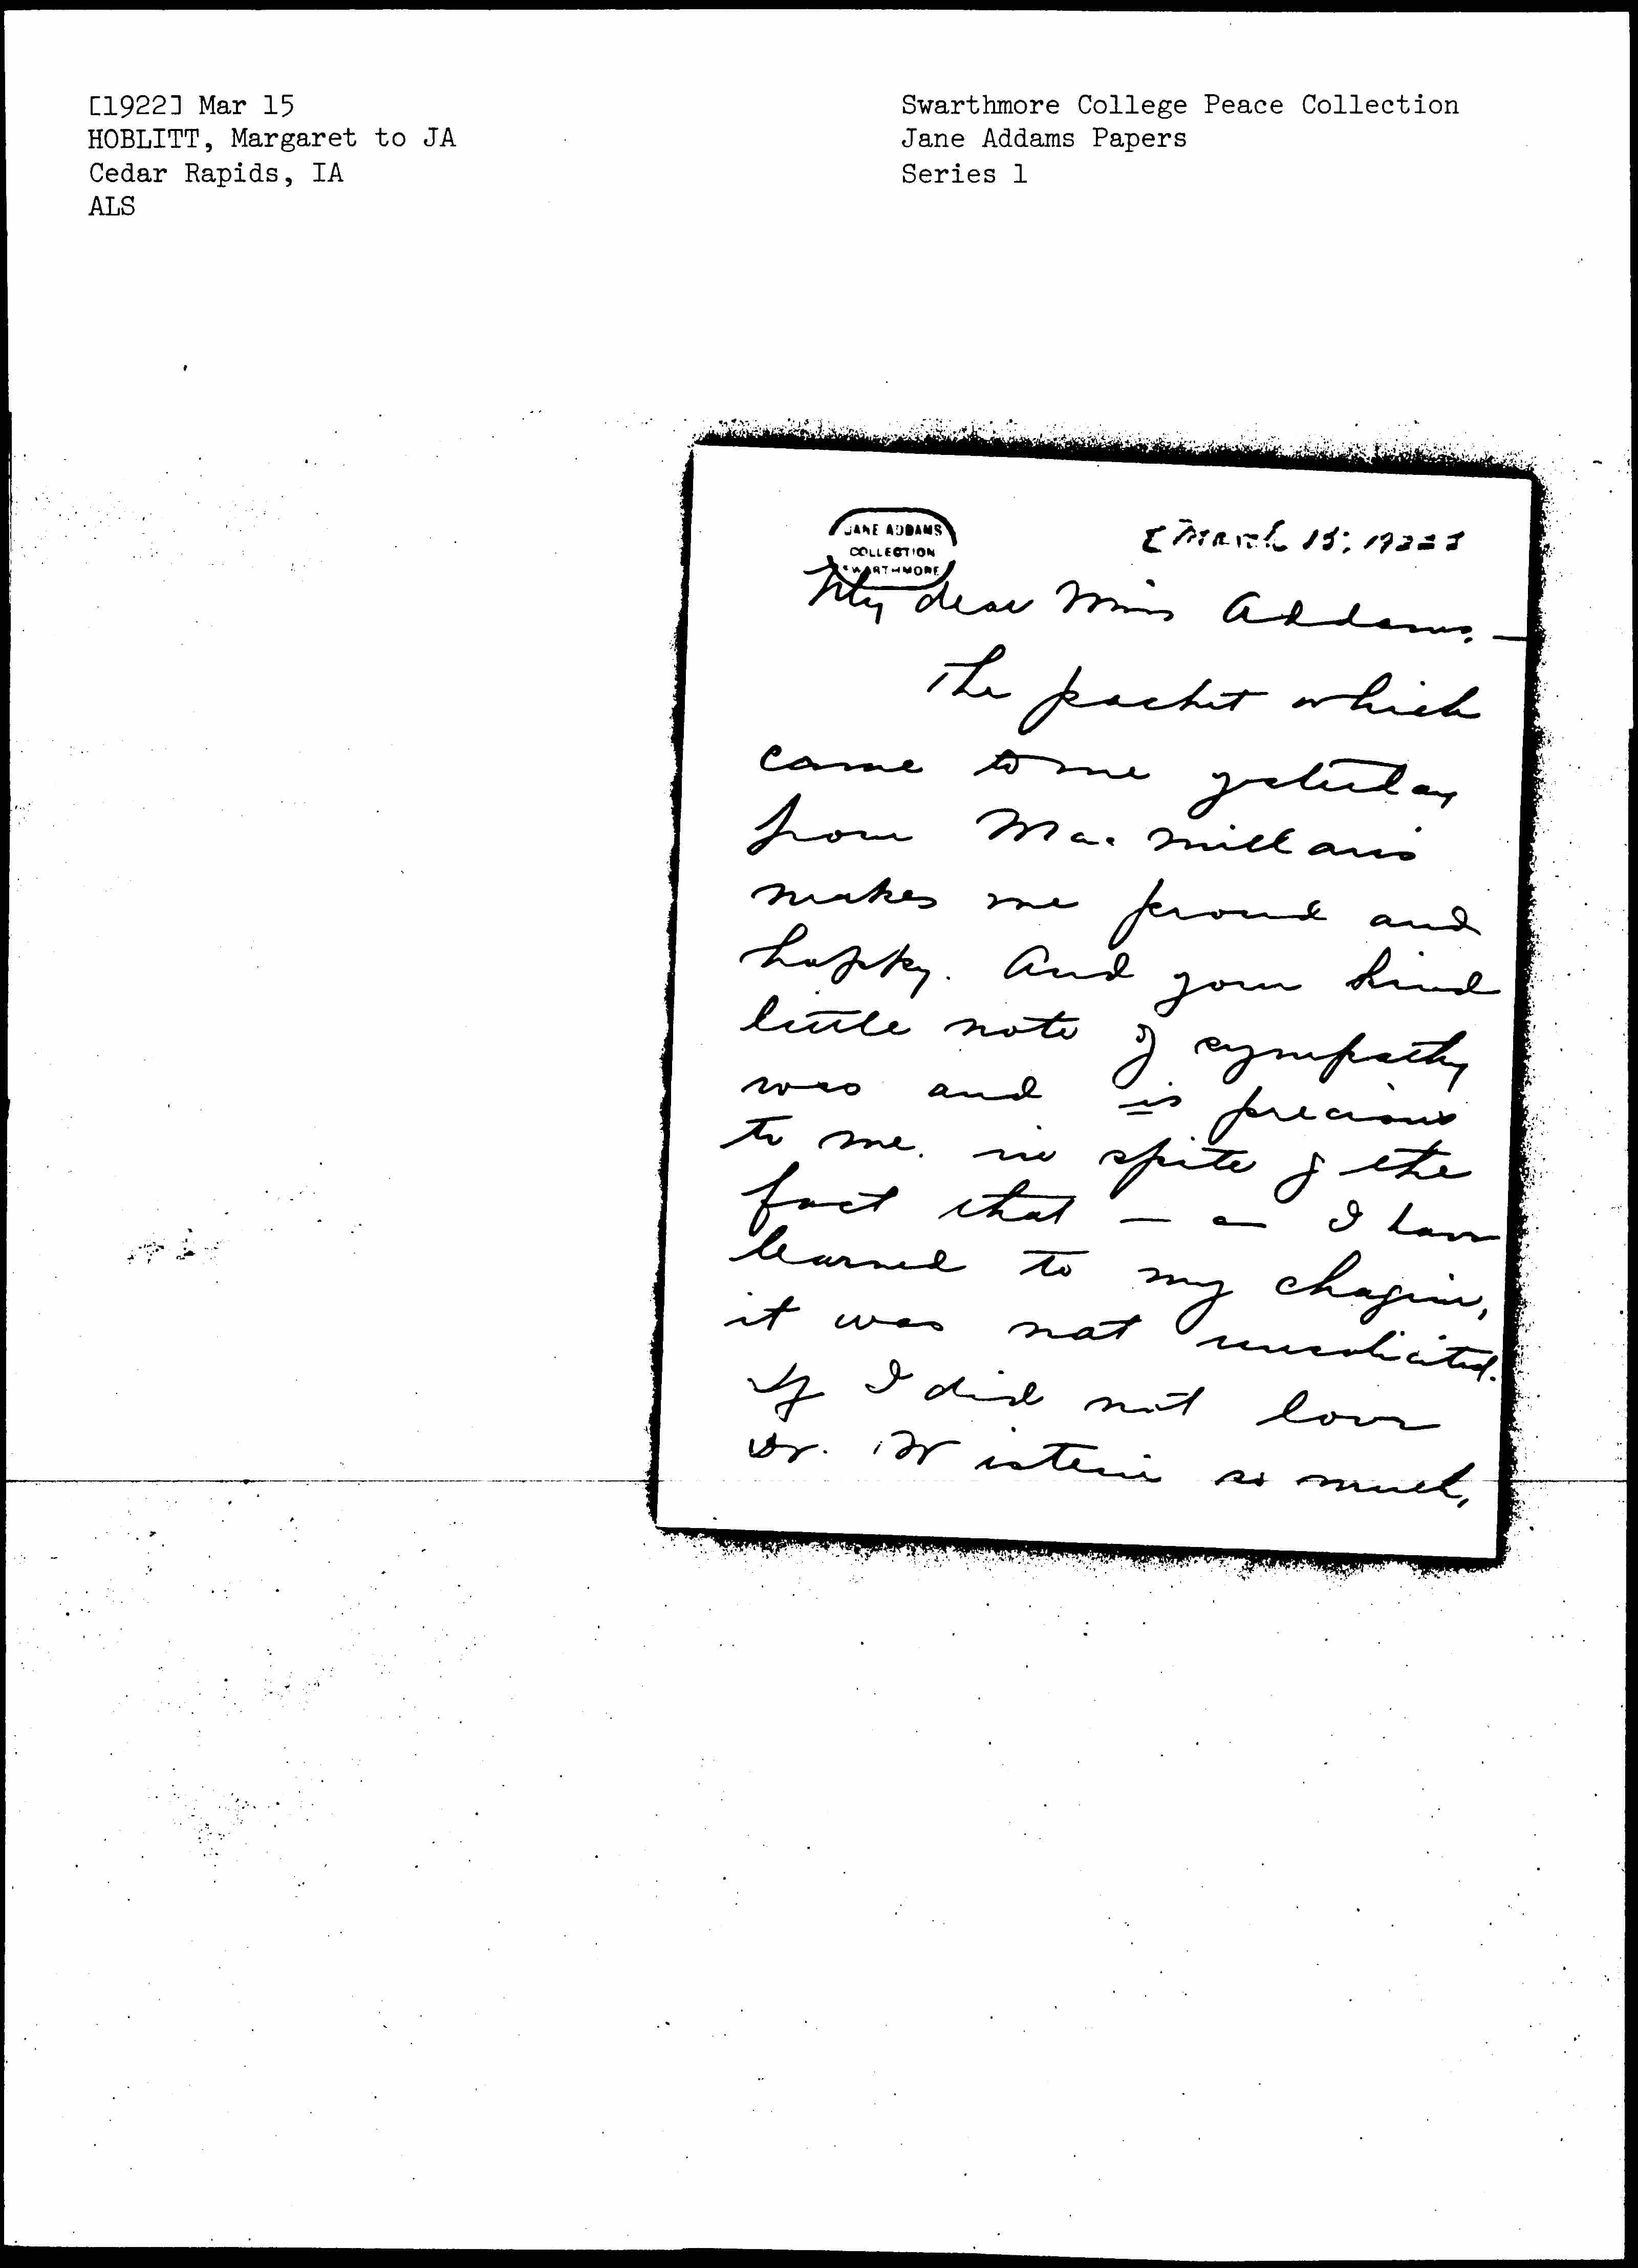 [1922] Mar 15
HOBLITT, Margaret to JA
Cedar Rapids, IA
ALS
Swarthmore College Peace Collection
Jane Addams Papers
Series 1
JANE ADDAMS
COLLECTION
SWARTHMORE
[March 15, 1922]
My dear Miss Addams, —
The packet which
came to me yesterday
from Macmillans
makes me proud and
happy. And your kind
little note of sympathy
was and is precious
to me. in spite of the
fact that — as I have
learned to my chagrin,
it was not unsolicited.
If I did not love
Dr. so much,